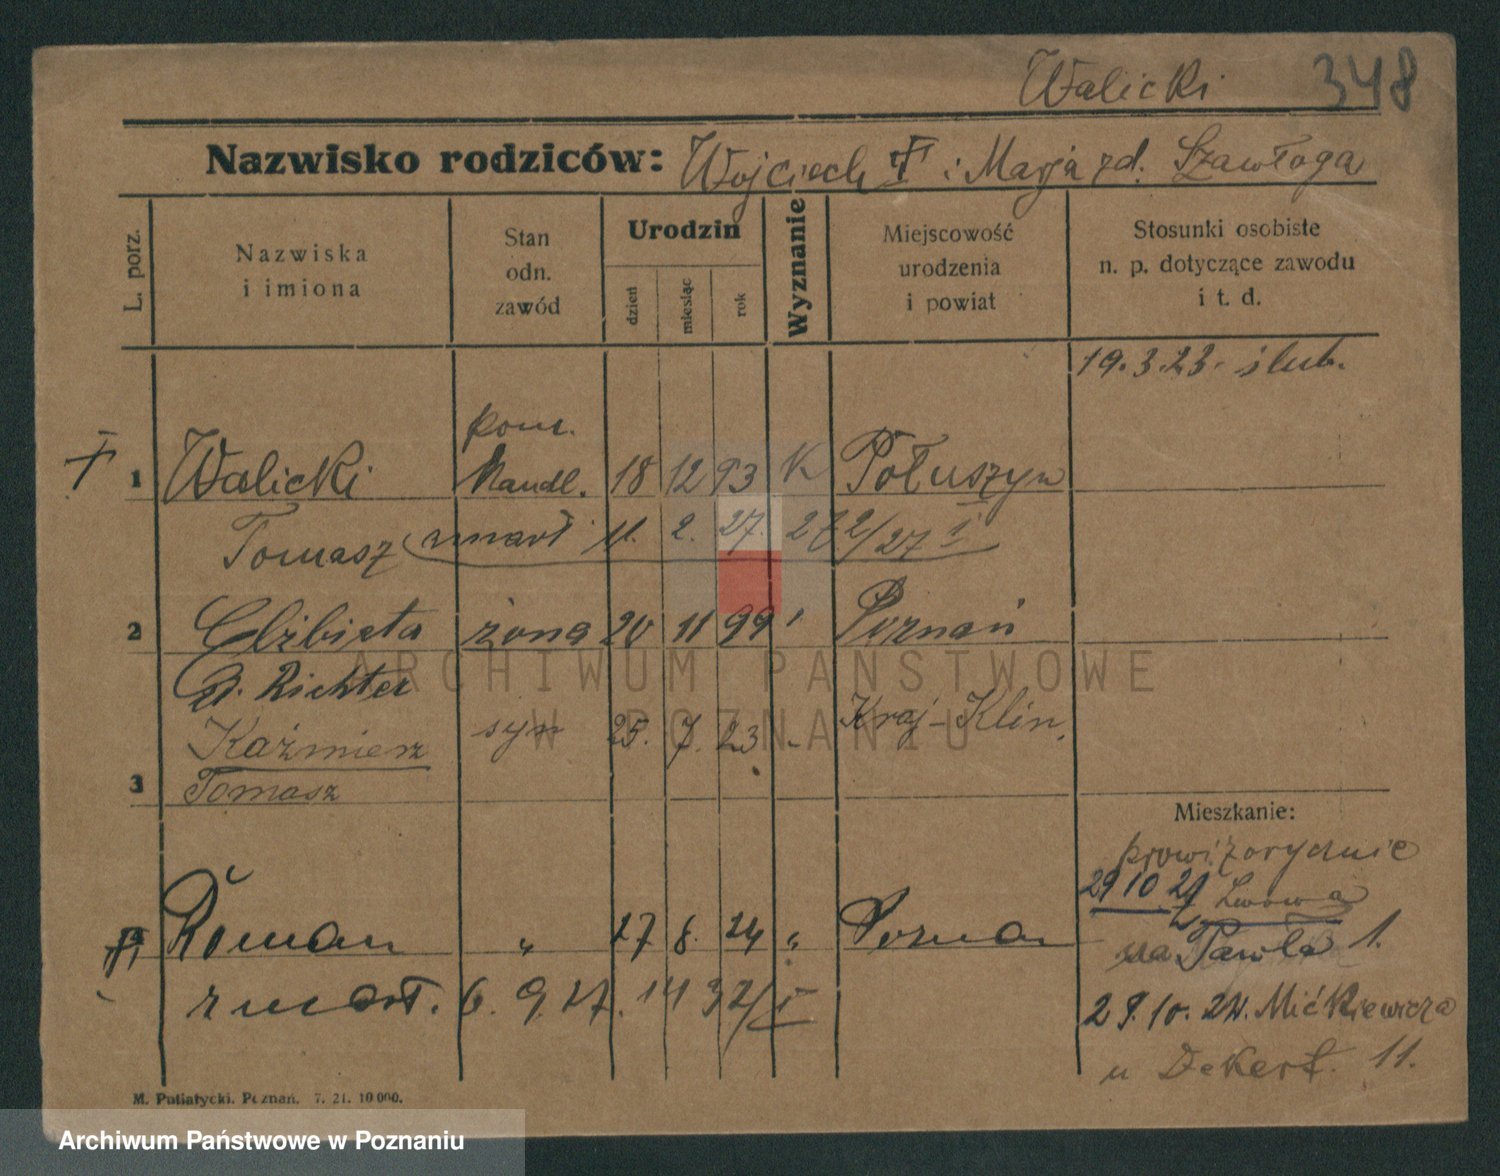 Walicki 348
Nazwisko rodziców: Wojciech i Marja zd. Szawłoga
L. porz.
Nazwiska i imiona
Stan odn. zawód
Urodzin
dzień
miesiąc
rok
Wyznanie
Miejscowość urodzenia i powiat
Stosunki osobiste n. p. dotyczące zawodu i t. d.
19.3.23. ślub.
pom.
1 Walicki handl. 18 12 93 K Połuszyn
Tomasz zmarł 11. 2. 27. 272/27 I
2 Elżbieta żona 20 11 99 Poznań
d. Richter
Kaźmierz syn 25. 7. 23 Kraj-Klin.
3 Tomasz
Mieszkanie:
prowizorycznie
29 10 21 Lwowa
Roman " 27 8. 24 " Poznan
na Pawla 1.
zmarł. 6. 9. 27.
29.10.24. Mickiewicza
u Dekert. 11.
M. Putiatycki. Poznań. 7. 21. 10 000.
ARCHIWUM PAŃSTWOWE
W POZNANIU
Archiwum Państwowe w Poznaniu